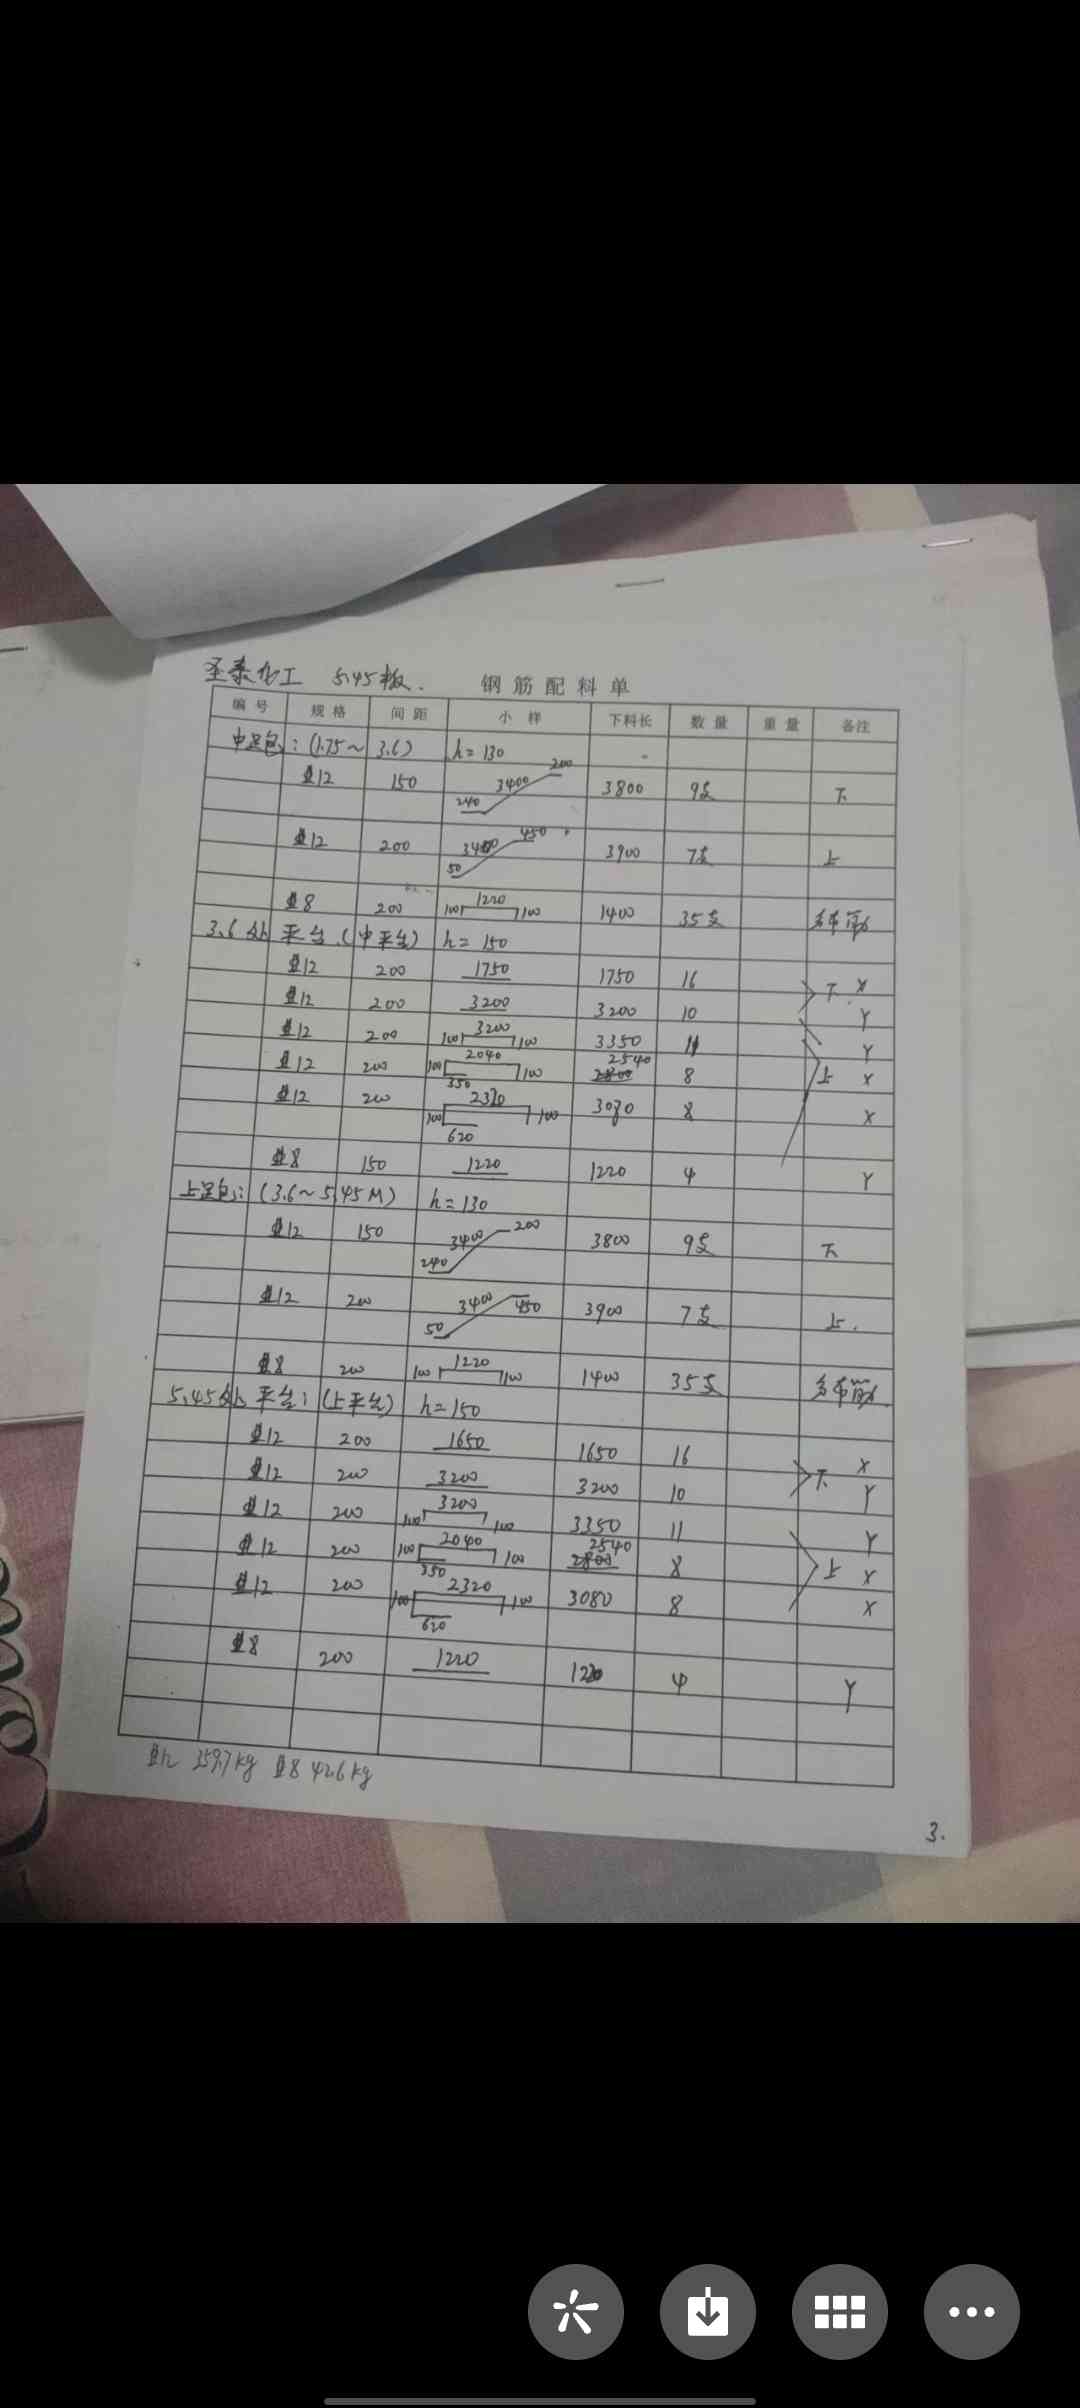 圣泰化工 5.45板. 钢筋配料单
编号 规格 间距 小样 下料长 数量 重量 备注
中足包: (1.75~3.6) h=130
⏀12 150 240 3400 200 3800 9支 下
⏀12 200 50 3400 450 3900 7支 上
⏀8 200 100 1220 100 1400 35支 分布筋
3.6处平台.(中平台) h=150
⏀12 200 1750 1750 16 下 X
⏀12 200 3200 3200 10 Y
⏀12 200 100 3200 100 3350 11 Y
⏀12 200 100 2040 100 350 2540 2800 8 上 X
⏀12 200 100 2320 100 620 3080 8 X
⏀8 150 1220 1220 4 Y
上足包: (3.6~5.45M) h=130
⏀12 150 240 3400 200 3800 9支 下
⏀12 200 50 3400 450 3900 7支 上.
⏀8 200 100 1220 100 1400 35支 分布筋.
5.45处平台: (上平台) h=150
⏀12 200 1650 1650 16 下 X
⏀12 200 3200 3200 10 Y
⏀12 200 100 3200 100 3350 11 Y
⏀12 200 100 2040 100 350 2540 2800 8 上 X
⏀12 200 100 2320 100 620 3080 8 X
⏀8 200 1220 1220 4 Y
⏀12 359.7kg ⏀8 42.6kg
3.